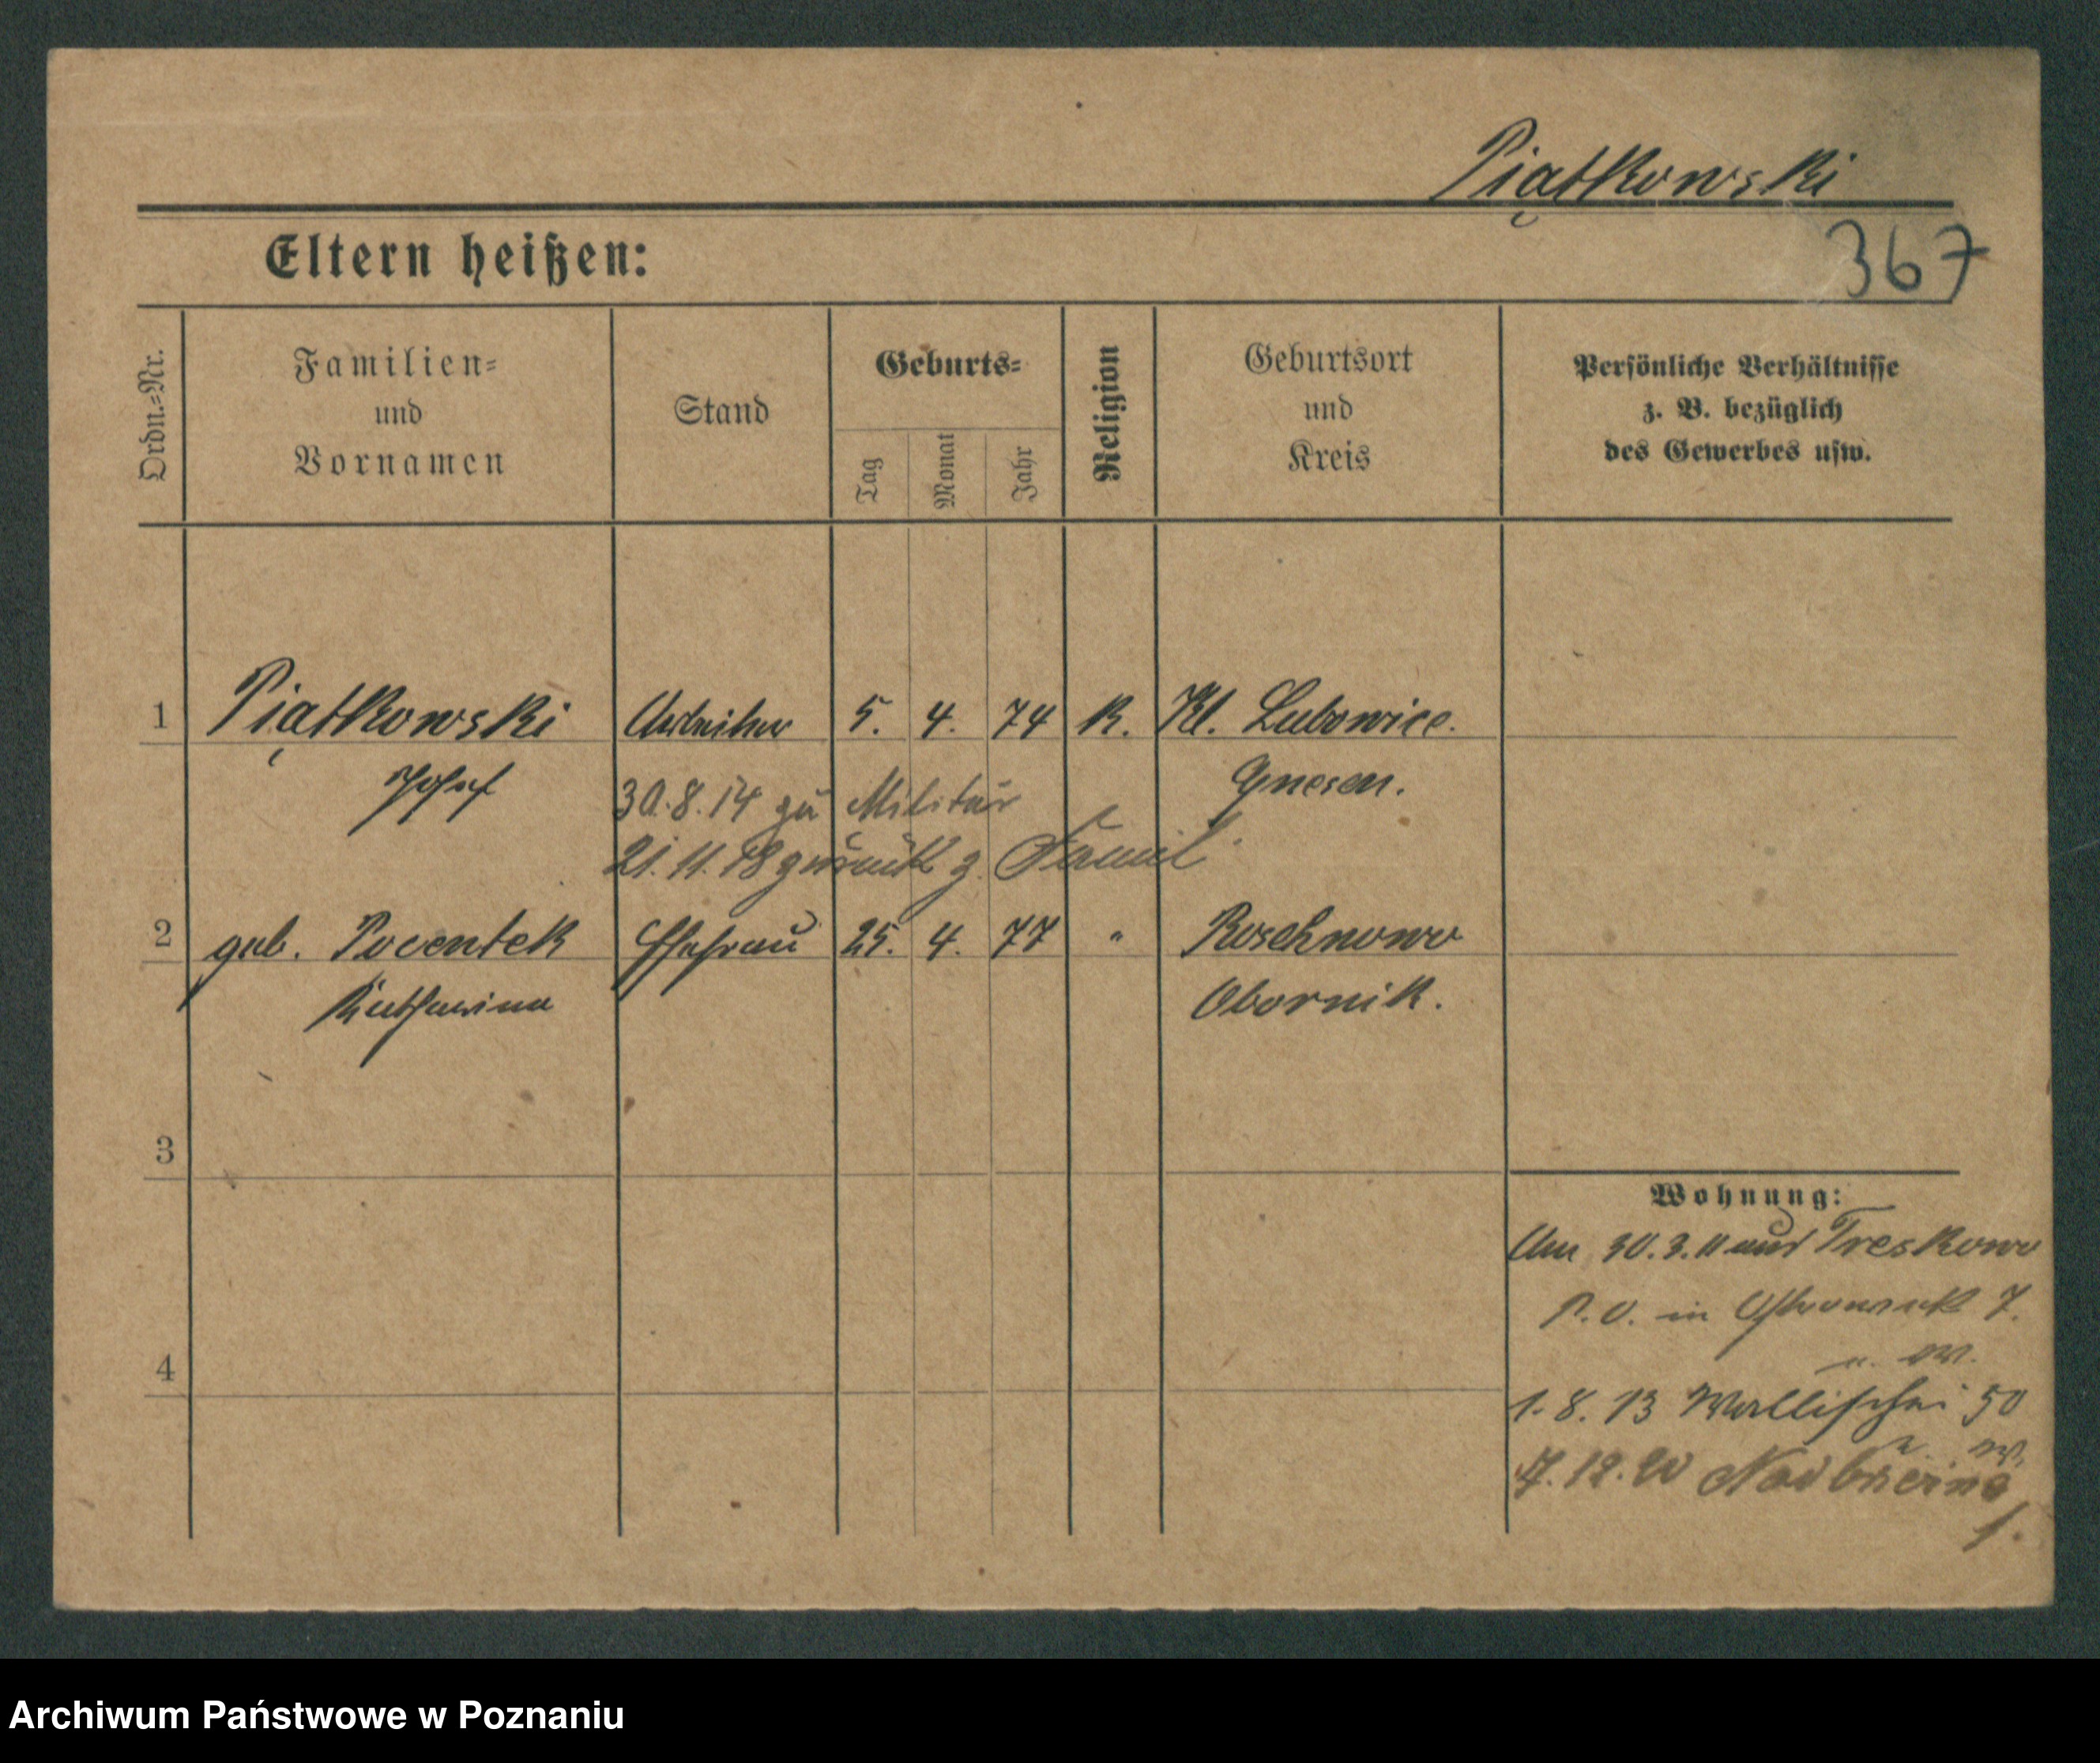 Piątkowski
367
Eltern heißen:
Ordn.=Nr.
Familien=
und
Vornamen
Stand
Geburts=
Tag
Monat
Jahr
Religion
Geburtsort
und
Kreis
Persönliche Verhältnisse
z. B. bezüglich
des Gewerbes usw.
1 Piątkowski Arbeiter 5. 4. 74 K. Kl. Lubowice.
Josef Gnesen.
30.8.14 zu Militär
21.11.18 zurück z. Famil
2 geb. Pocentek Ehefrau 25. 4. 77 " Roschnowo
Katharina Obornik.
3
4
Wohnung:
Am 30.3.11 aus Treskowo
P.O. in 7.
1.8.13 Wallischei 50
12.20
1.
Archiwum Państwowe w Poznaniu